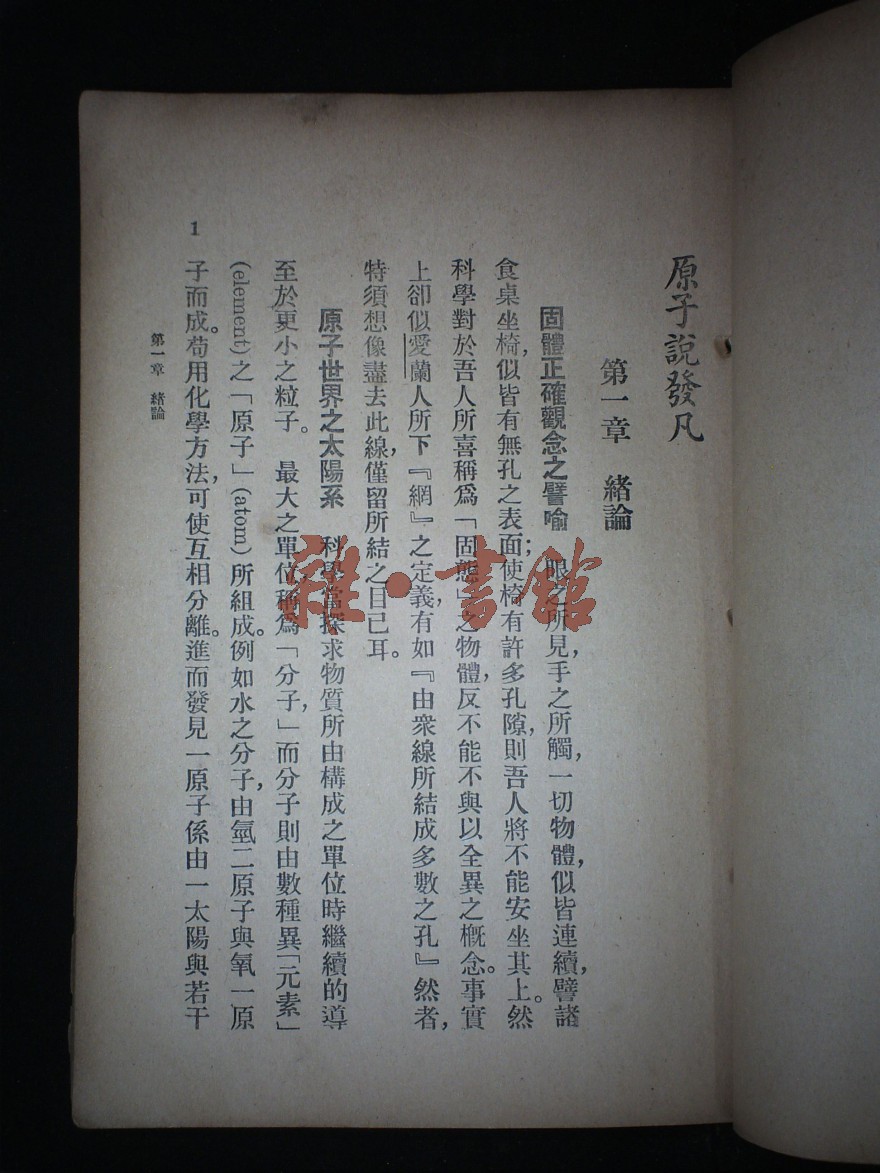 原子說發凡
第一章　緒論
固體正確觀念之譬喻　眼之所見，手之所觸，一切物體，似皆連續，譬諸
食桌坐椅，似皆有無孔之表面；使椅有許多孔隙，則吾人將不能安坐其上。然
科學對於吾人所喜稱爲「固態」之物體，反不能不與以全異之概念。事實
上卻似愛蘭人所下『網』之定義，有如『由衆線所結成多數之孔』然者，
特須想像盡去此線，僅留所結之目已耳。
原子世界之太陽系　科學當探求物質所由構成之單位時繼續的導
至於更小之粒子。　最大之單位稱爲「分子」，而分子則由數種異「元素」
(element)之「原子」(atom)所組成。例如水之分子，由氫二原子與氧一原
子而成。苟用化學方法，可使互相分離。進而發見一原子係由一太陽與若干
1
第一章　緒論
雜·書館